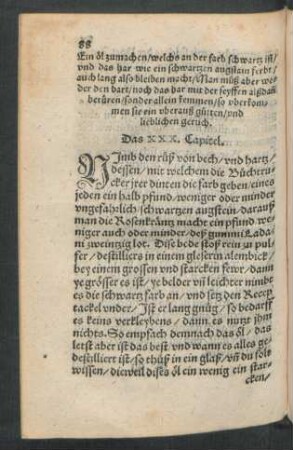 88
Ein öl zumachen/welchs an der farb schwartz ist/
vnd das har wie ein schwartzen augstain ferbt/
auch lang also bleiben macht/Man müß aber we-
der den bart/noch das har mit der seyffen alßdañ
berüren/sonder allein kemmen/so vberkom-
men sie ein vberauß gütten/vnd
lieblichen geruch.
Das XXX. Capitel.
NImb den rüß von bech/vnd hartz/
dessen/mit welchem die Büchtru-
cker jrer dinten die farb geben/eines
jeden ein halb pfund/weniger oder minder
vngefahrlich/schwartzen augstein/darauß
man die Rosenkräntz macht ein pfund/weni-
ger auch oder minder/deß gummi Lada-
ni zweintzig lot. Dise bede stoß rein zu pul-
fer/destilliers in einem gleserin alembick/
bey einem grossen vnd starcken fewr/dann
ye grösser es ist/ye belder vñ leichter nimbt
es die schwartz farb an/vnd setz den Recep-
tackel vnder/Ist er lang gnüg/so bedarff
es keins verkleybens/dann es nutzt jhm
nichts. So empfach demnach das öl/das
letst aber ist das best/vnd wann es alles ge-
destilliert ist/so thüß in ein glaß/vñ du solt
wissen/dieweil dises öl ein wenig ein star-
cken/